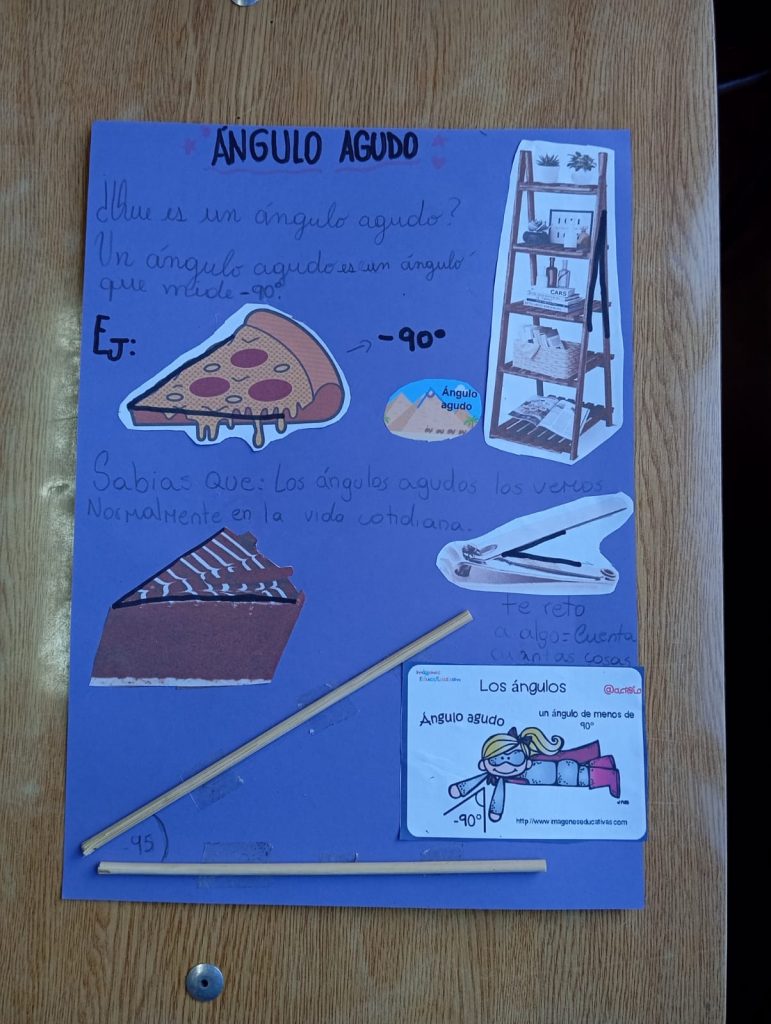 ÁNGULO AGUDO
¿Que es un ángulo agudo?
Un ángulo agudo es un ángulo
que mide -90°.
EJ:
-90°
CARS
Ángulo
agudo
Sabias Que: Los ángulos agudos los vemos
Normalmente en la vida cotidiana.
te reto
a algo= Cuenta
cuantas cosas
Imágenes
Educativas
Los ángulos
Ángulo agudo
un ángulo de menos de
90°
-90°
http://www.imageneseducativas.com
-95